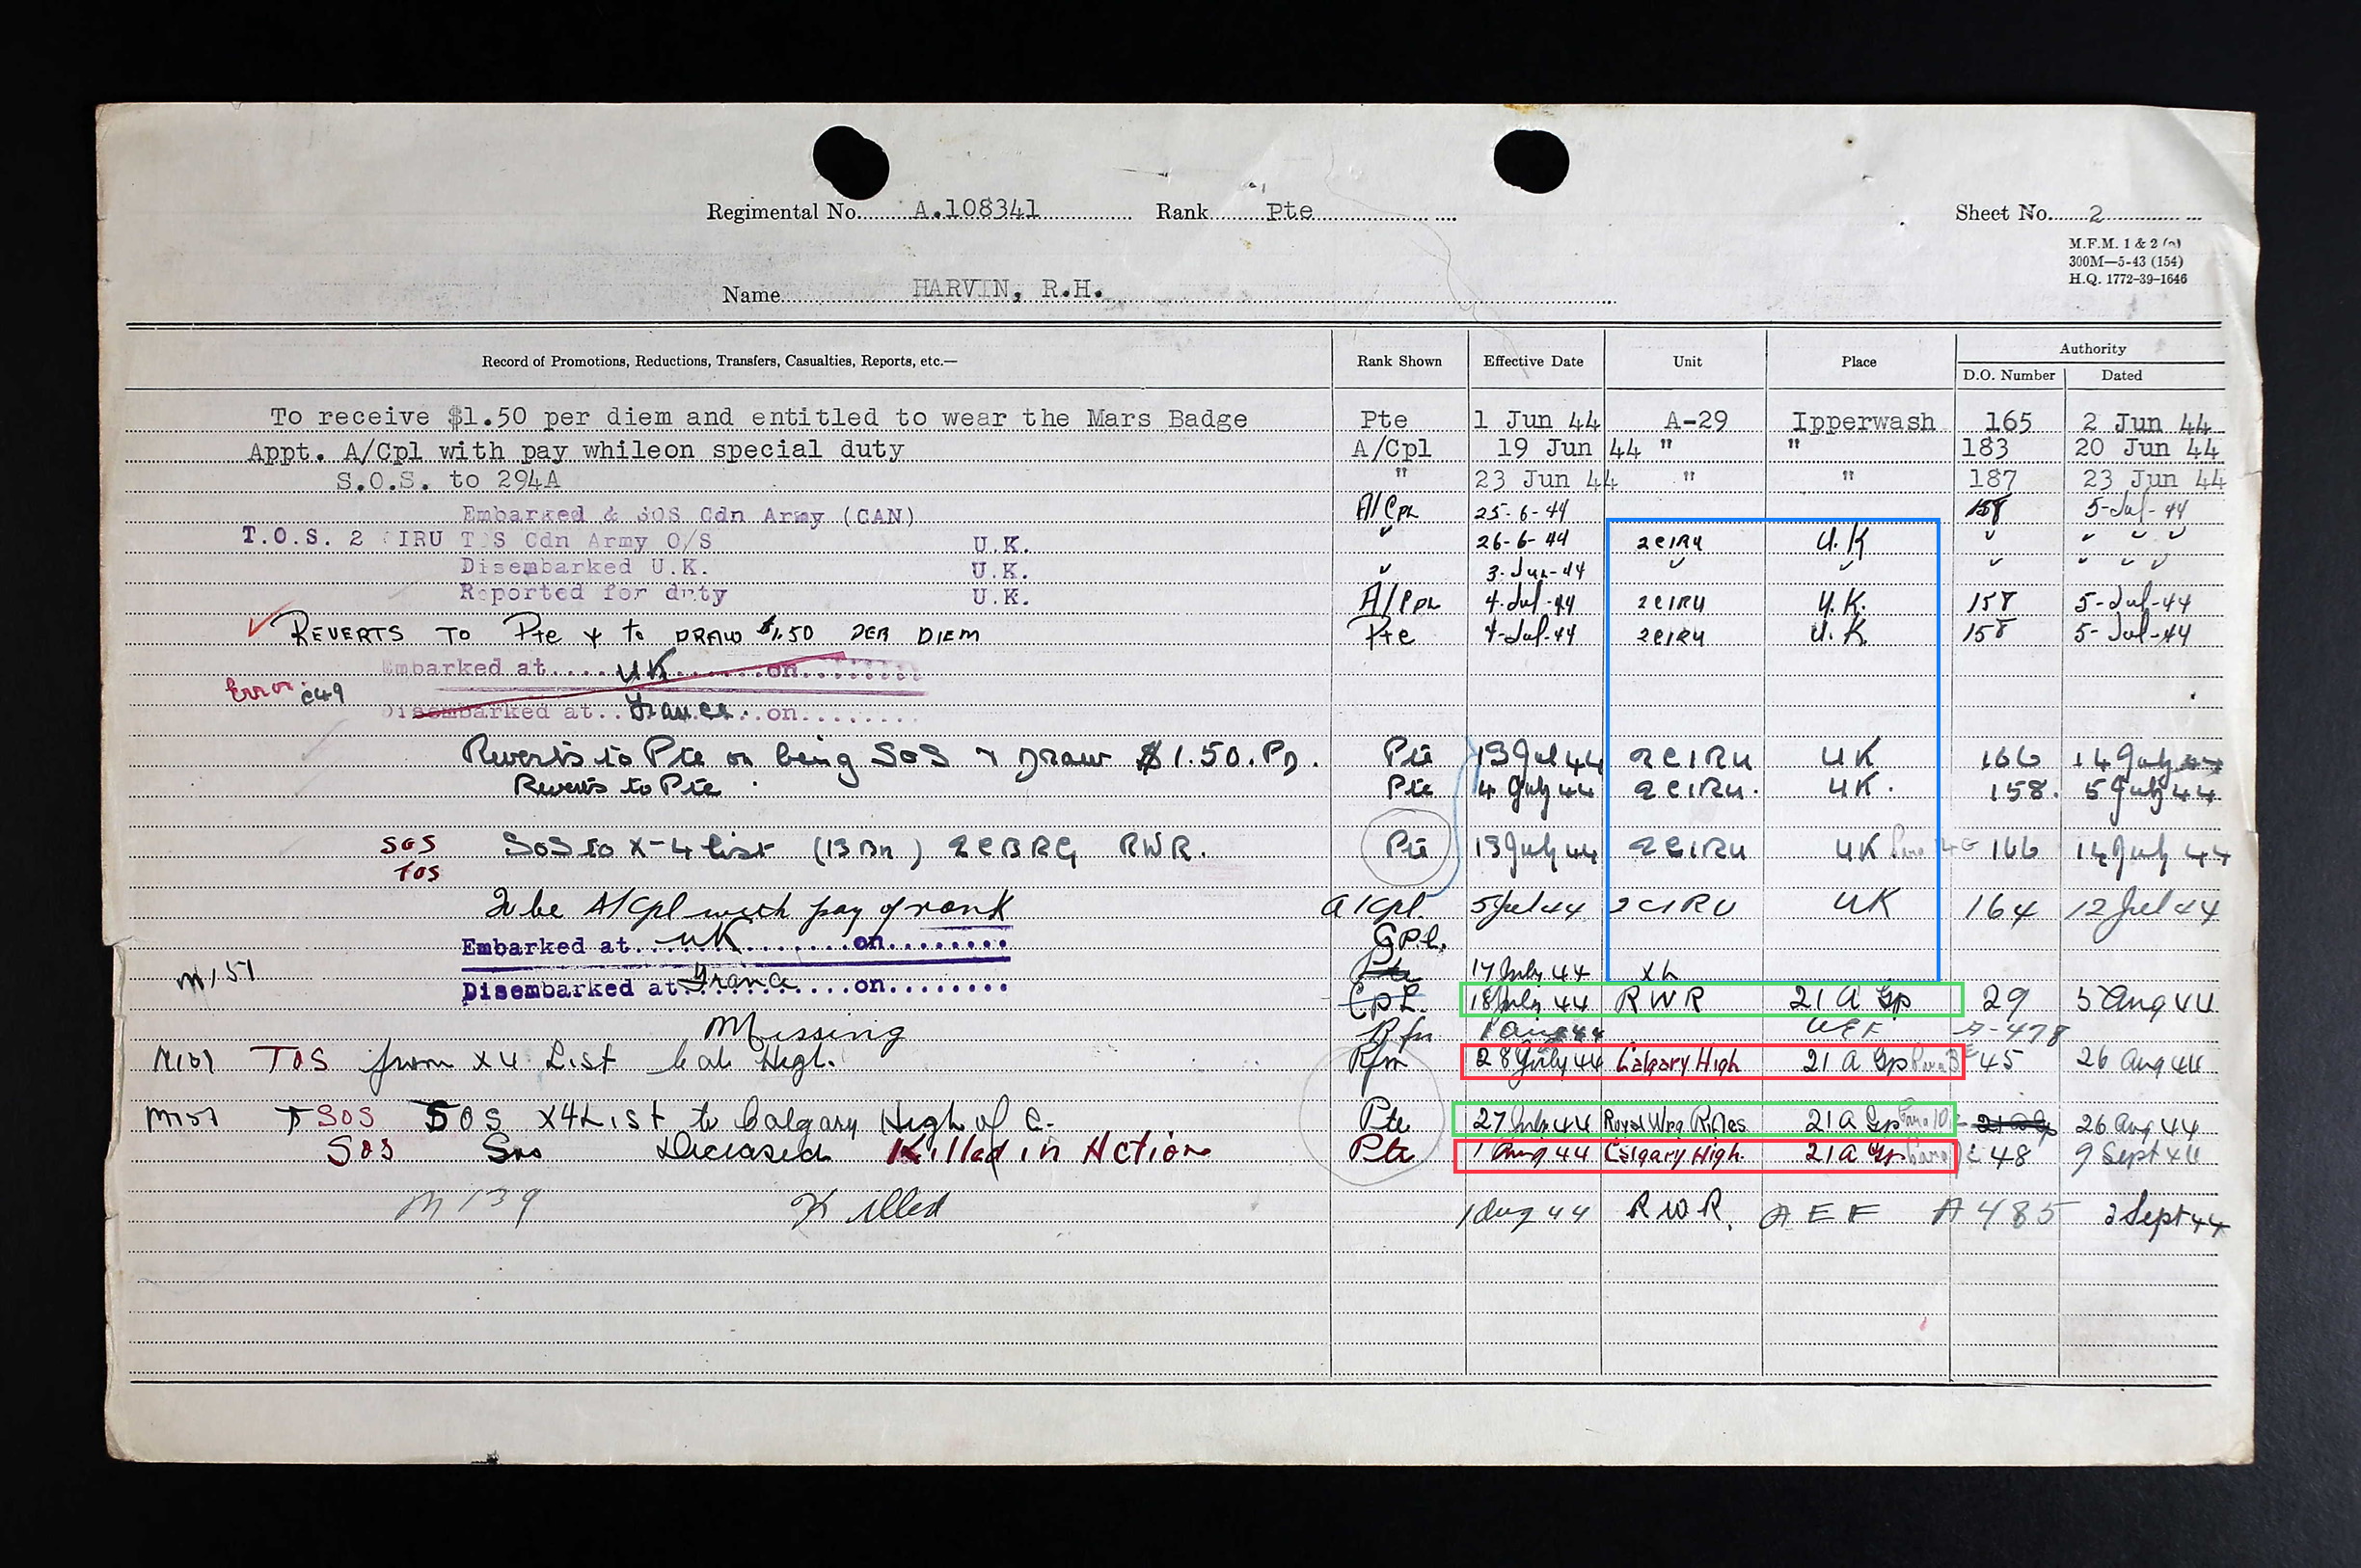 Regimental No. A.108341 Rank Pte Sheet No. 2
M.F.M. 1 & 2 (a)
300M—5-43 (154)
H.Q. 1772-39-1646
Name HARVIN, R.H.
Record of Promotions, Reductions, Transfers, Casualties, Reports, etc.— Rank Shown Effective Date Unit Place Authority
D.O. Number Dated
To receive $1.50 per diem and entitled to wear the Mars Badge Pte 1 Jun 44 A-29 Ipperwash 165 2 Jun 44
Appt. A/Cpl with pay whileon special duty A/Cpl 19 Jun 44 " " 183 20 Jun 44
S.O.S. to 294A " 23 Jun 44 " " 187 23 Jun 44
Embarked & SOS Cdn Army (CAN) A/Cpl 25-6-44 158 5-Jul-44
T.O.S. 2 CIRU TOS Cdn Army O/S U.K. " 26-6-44 2CIRU U.K " " " "
Disembarked U.K. U.K. " 3-Jul-44 " " " " " "
Reported for duty U.K. A/Cpl 4-Jul-44 2CIRU U.K. 158 5-Jul-44
REVERTS TO Pte & to DRAW $1.50 PER DIEM Pte 4-Jul-44 2CIRU U.K. 158 5-Jul-44
Embarked at....UK......on........
Error. C49
Disembarked at..France...on........
Reverts to Pte on being SOS & Draw $1.50.PD. Pte 13 Jul 44 2CIRU UK 166 14 July 44
Reverts to Pte Pte 4 July 44 2CIRU. UK. 158. 5 July 44
SOS SOS to X-4 List (13 Bn) 2CBRG RWR. Pte 13 July 44 2CIRU UK 166 14 July 44
TOS
To be A/Cpl with pay of rank A/Cpl. 5 Jul 44 2CIRU UK 164 12 Jul 44
Embarked at...UK.......on........ Cpl.
M151 17 July 44 X4
Disembarked at France....on........ Cpl. 18 July 44 RWR 21 A Gp 29 5 Aug 44
Missing Rfn 1 Aug 44 A-478
M151 TOS from X4 List Cal High. Rfn 28 July 44 Calgary High 21 A Gp 45 26 Aug 44
M151 SOS SOS X4 List to Calgary High of C. Pte 27 July 44 Royal Wpg Rifles 21 A Gp 26 Aug 44
SOS Sos Deceased Killed in Action Pte 1 Aug 44 Calgary High. 21 A Gp 48 9 Sept 44
M139 Killed 1 Aug 44 RWR. AEF A485 2 Sept 44